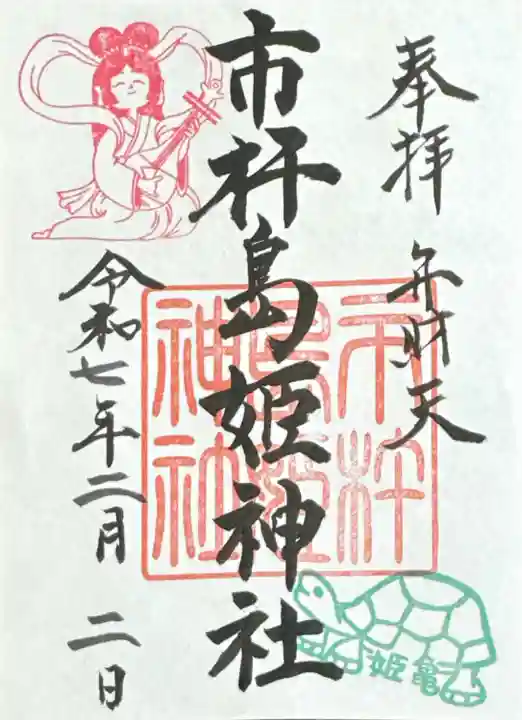 奉拝 弁財天
市杵島姫神社
市杵
島姫
神社
令和七年二月二日
姫亀